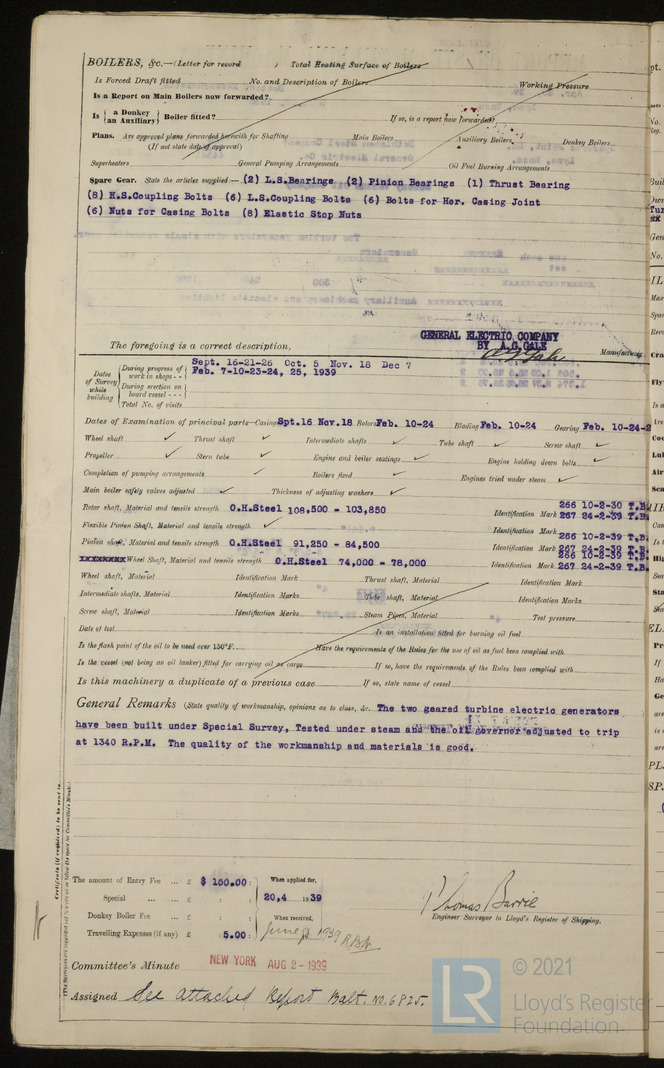 BOILERS, &c.—(Letter for record ) Total Heating Surface of Boilers
Is Forced Draft fitted No. and Description of Boilers Working Pressure
Is a Report on Main Boilers now forwarded?
Is { a Donkey / an Auxiliary } Boiler fitted? If so, is a report now forwarded?
Plans. Are approved plans forwarded herewith for Shafting Main Boilers Auxiliary Boilers Donkey Boilers
(If not state date of approval)
Superheaters General Pumping Arrangements Oil Fuel Burning Arrangements
Spare Gear. State the articles supplied— (2) L.S.Bearings (2) Pinion Bearings (1) Thrust Bearing
(8) H.S.Coupling Bolts (6) L.S.Coupling Bolts (6) Bolts for Hor. Casing Joint
(6) Nuts for Casing Bolts (8) Elastic Stop Nuts
GENERAL ELECTRIC COMPANY
BY A.G.GALE
The foregoing is a correct description, Manufacturer
Dates of Survey while building
During progress of work in shops - - Sept. 16-21-26 Oct. 5 Nov. 18 Dec 7
Feb. 7-10-23-24, 25, 1939
During erection on board vessel - - -
Total No. of visits
Dates of Examination of principal parts—Casings Spt.16 Nov.18 Rotors Feb. 10-24 Blading Feb. 10-24 Gearing Feb. 10-24-2
Wheel shaft ✓ Thrust shaft ✓ Intermediate shafts ✓ Tube shaft ✓ Screw shaft ✓
Propeller ✓ Stern tube ✓ Engine and boiler seatings ✓ Engine holding down bolts ✓
Completion of pumping arrangements ✓ Boilers fixed ✓ Engines tried under steam ✓
Main boiler safety valves adjusted ✓ Thickness of adjusting washers ✓
Rotor shaft, Material and tensile strength O.H.Steel 108,500 - 103,850 Identification Mark 266 10-2-30 T.B.
267 24-2-39 T.B.
Flexible Pinion Shaft, Material and tensile strength ✓ Identification Mark
Pinion shaft, Material and tensile strength O.H.Steel 91,250 - 84,500 Identification Mark 266 10-2-39 T.B.
267 24-2-39 T.B.
XXXXXXXX Wheel Shaft, Material and tensile strength O.H.Steel 74,000 - 78,000 Identification Mark 266 10-2-39 T.B.
267 24-2-39 T.B.
Wheel shaft, Material Identification Mark Thrust shaft, Material Identification Mark
Intermediate shafts, Material Identification Marks Tube shaft, Material Identification Marks
Screw shaft, Material Identification Marks Steam Pipes, Material Test pressure
Date of test Is an installation fitted for burning oil fuel
Is the flash point of the oil to be used over 150°F. Have the requirements of the Rules for the use of oil as fuel been complied with
Is the vessel (not being an oil tanker) fitted for carrying oil as cargo If so, have the requirements of the Rules been complied with
Is this machinery a duplicate of a previous case If so, state name of vessel
General Remarks (State quality of workmanship, opinions as to class, &c. The two geared turbine electric generators
have been built under Special Survey, Tested under steam and the oil governor adjusted to trip
at 1340 R.P.M. The quality of the workmanship and materials is good.
The amount of Entry Fee ... £ $ 150.00 When applied for,
Special ... ... £ : : 20.4 1939
Donkey Boiler Fee ... £ : : When received,
Travelling Expenses (if any) £ : 5.00 June 1939
Thomas Barrie
Engineer Surveyor to Lloyd's Register of Shipping.
Committee's Minute NEW YORK AUG 2-1939
Assigned See attached Report Balt. No. 6825.
LR © 2021
Lloyd's Register
Foundation